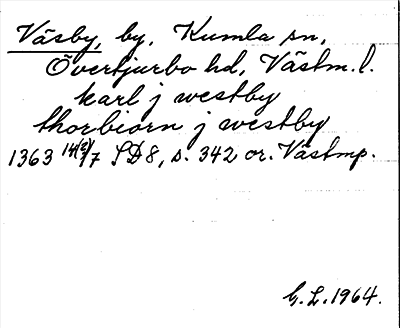 Väsby, by, Kumla sn,
Övertjurbo hd, Västm. l.
karl j westby
thorbiorn j westby
1363 14(2)/7 SD 8, s. 342 or. Västmp.
G. L. 1964.